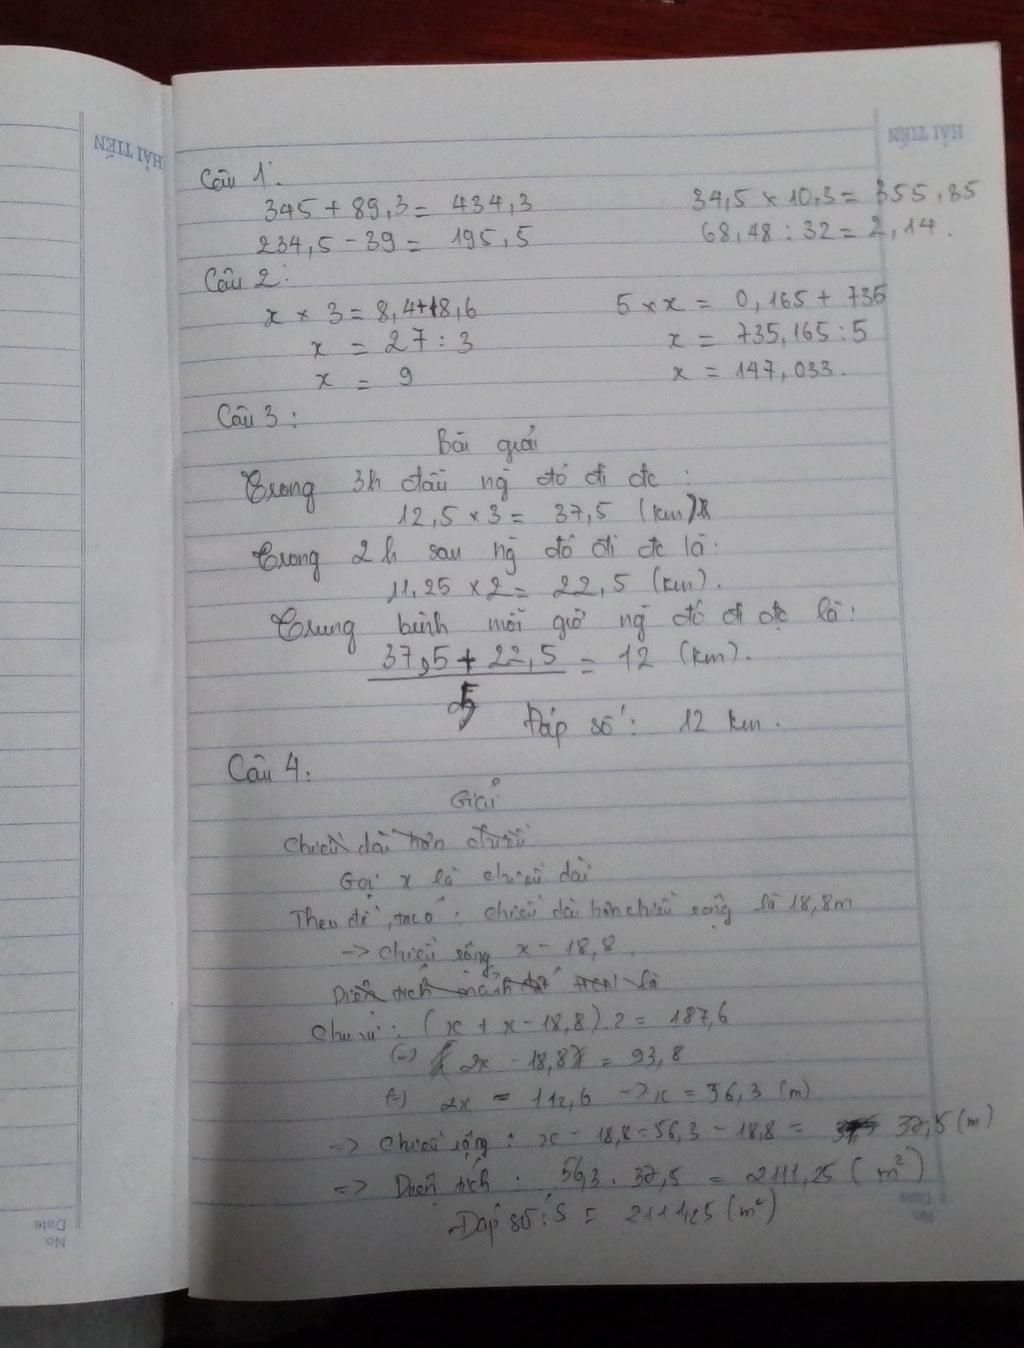 HẢI TIẾN
HẢI TIẾN
Câu 1:
345 + 89,3 = 434,3 34,5 × 10,3 = 355,35
234,5 - 39 = 195,5 68,48 : 32 = 2,14.
Câu 2:
x × 3 = 8,4+18,6 5 × x = 0,165 + 735
x = 27 : 3 x = 735,165 : 5
x = 9 x = 147,033.
Câu 3:
Bài giải
Trong 3h đầu ng đó đi đc :
12,5 × 3 = 37,5 (km)
Trong 2h sau ng đó đi đc là:
11,25 × 2 = 22,5 (km).
Trung bình mỗi giờ ng đó đi đc là:
37,5 + 22,5 = 12 (km).
5
Đáp số: 12 km.
Câu 4:
Giải
Chiều dài hơn chiều
Gọi x là chiều dài
Theo đề, ta có : chiều dài hơn chiều rộng là 18,8m
-> chiều rộng x - 18,8.
Diện tích mảnh đất trên là
Chu vi : (x + x - 18,8).2 = 187,6
(-) 2x - 18,8 = 93,8
(-) 2x = 112,6 -> x = 56,3 (m)
-> chiều rộng : x - 18,8 = 56,3 - 18,8 = 37,5 (m)
=> Diện tích : 56,3 . 37,5 = 2111,25 (m²)
Đáp số : S = 2111,25 (m²)
No.
Date
No.
Date